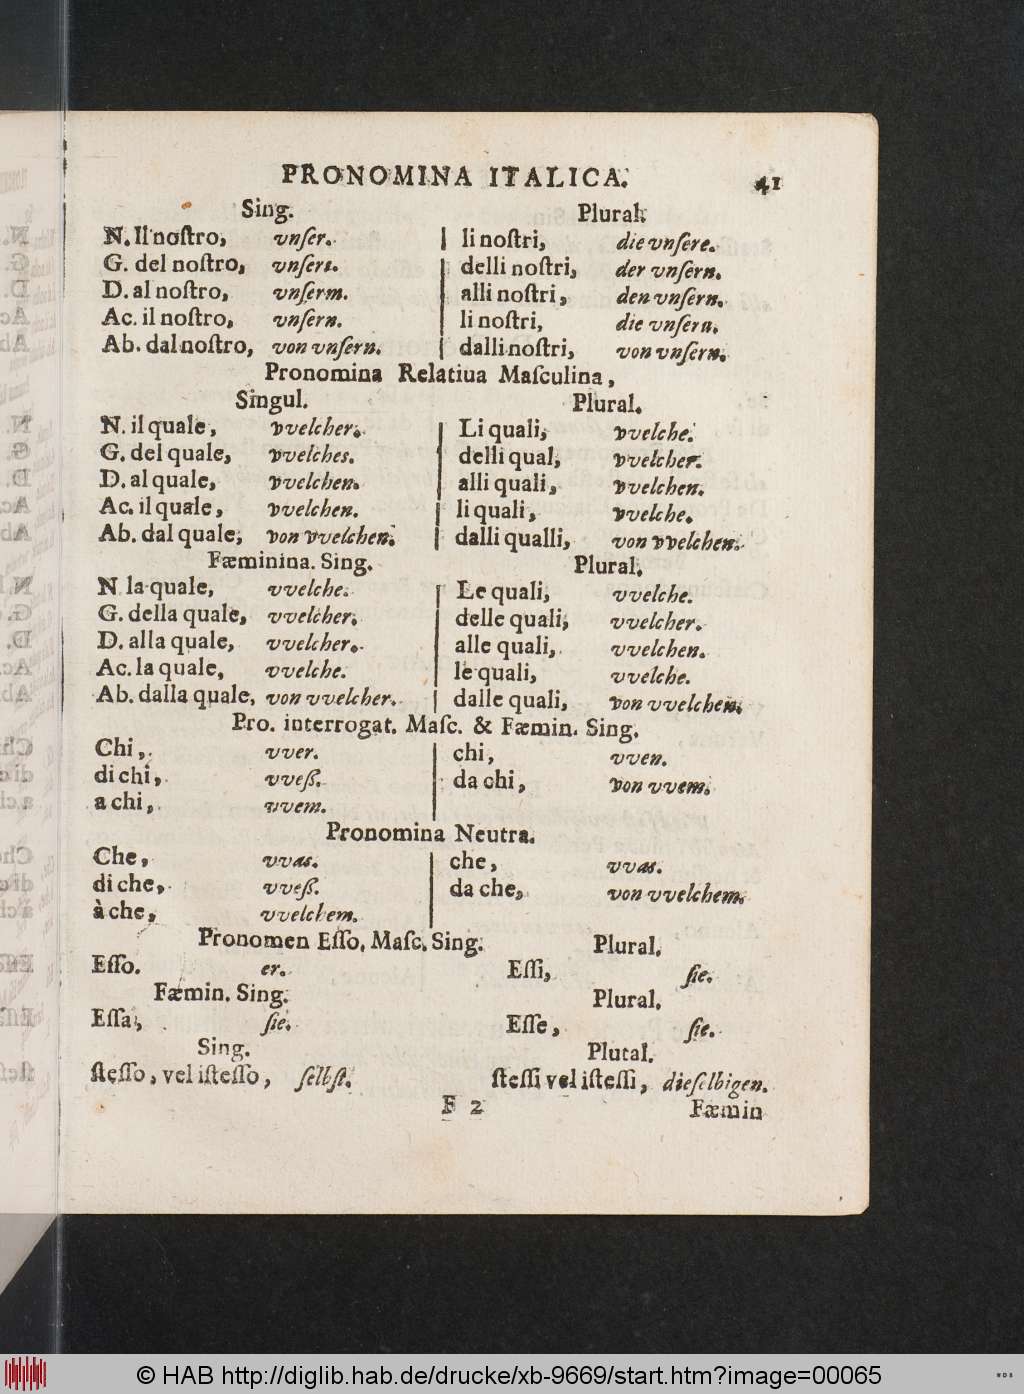 PRONOMINA ITALICA. 41
Sing. Plural.
N. Il nostro, vnſer. li noſtri, die vnſere.
G. del noſtro, vnſers. delli noſtri, der vnſern.
D. al noſtro, vnſerm. alli noſtri, den vnſern.
Ac. il noſtro, vnſern. li noſtri, die vnſern.
Ab. dal noſtro, von vnſern. dalli noſtri, von vnſern.
Pronomina Relatiua Maſculina,
Singul. Plural.
N. il quale, vvelcher. Li quali, vvelche.
G. del quale, vvelches. delli qual, vvelcher.
D. al quale, vvelchen. alli quali, vvelchen.
Ac. il quale, vvelchen. li quali, vvelche.
Ab. dal quale, von vvelchen. dalli qualli, von vvelchen.
Fæminina. Sing. Plural.
N la quale, vvelche. Le quali, vvelche.
G. della quale, vvelcher. delle quali, vvelcher.
D. alla quale, vvelcher. alle quali, vvelchen.
Ac. la quale, vvelche. le quali, vvelche.
Ab. dalla quale, von vvelcher. dalle quali, von vvelchen.
Pro. interrogat. Maſc. & Fæmin. Sing.
Chi, vver. chi, vven.
di chi, vveß. da chi, von vvem.
a chi, vvem.
Pronomina Neutra.
Che, vvas. che, vvas.
di che, vveß. da che, von vvelchem.
à che, vvelchem.
Pronomen Eſſo, Maſc. Sing. Plural.
Eſſo. er. Eſſi, ſie.
Fæmin. Sing. Plural.
Eſſa, ſie. Eſſe, ſie.
Sing. Plutal.
ſteſſo, vel iſteſſo, ſelbſt. ſteſſi vel iſteſſi, dieſelbigen.
F 2 Fæmin
© HAB http://diglib.hab.de/drucke/xb-9669/start.htm?image=00065